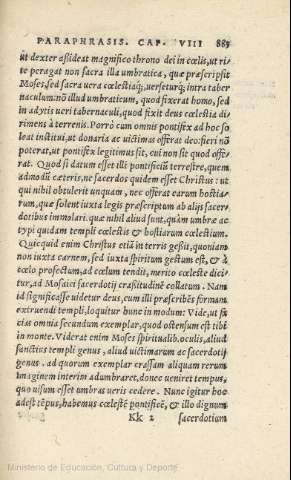 PARAPHRASIS. CAP. VIII 885
ut dexter aſſideat magnifico throno dei in cœlis, ut ri⸗
te peragat non ſacra illa umbratica, quæ præſcripſit
Moſes, ſed ſacra uera cœleſtiaq́;, uerſeturq́; intra taber
naculum: nõ illud umbraticum, quod fixerat homo, ſed
in adytis ueri tabernaculi, quod fixit deus cœleſtia di⸗
rimens à terrenis. Porrò cum omnis pontifex ad hoc ſo
leat inſtitui, ut donaria ac uictimas offerat deo: fieri nõ
poterat, ut pontifex legitimus ſit, cui non ſit quod offe⸗
rat. Quod ſi datum eſſet illi pontificiũ terreſtre, quem
admodũ cæteris, ne ſacerdos quidem eſſet Chriſtus: ut
qui nihil obtulerit unquam, nec offerat earum hoſtia⸗
rum, quæ ſolent iuxta legis præſcriptum ab alijs ſacer⸗
dotibus immolari. quæ nihil aliud ſunt, quàm umbræ ac
typi quidam templi cœleſtis & hoſtiarum cœleſtium.
Quicquid enim Chriſtus etiã in terris geſſit, quoniam
non iuxta carnem, ſed iuxta ſpiritum geſtum eſt, & à
cœlo profectum, ad cœlum tendit, merito cœleſte dici⸗
tur, ad Moſaici ſacerdotij craſſitudinẽ collatum. Nam
id ſignificaſſe uidetur deus, cum illi præſcribẽs formam
extruendi templi, loquitur hunc in modum: Vide, ut fa
cias omnia ſecundum exemplar, quod oſtenſum eſt tibi
in monte. Viderat enim Moſes ſpiritualib. oculis, aliud
ſanctius templi genus, aliud uictimarum ac ſacerdotij
genus. ad quorum exemplar craſſam aliquam rerum
imaginem interim adumbraret, donec ueniret tempus,
quo uiſum eſſet umbras ueris cedere. Nunc igitur hoc
adeſt tẽpus, habemus cœleſtẽ pontificẽ, & illo dignum
Kk 2 ſacerdotium
Ministerio de Educación, Cultura y Deporte